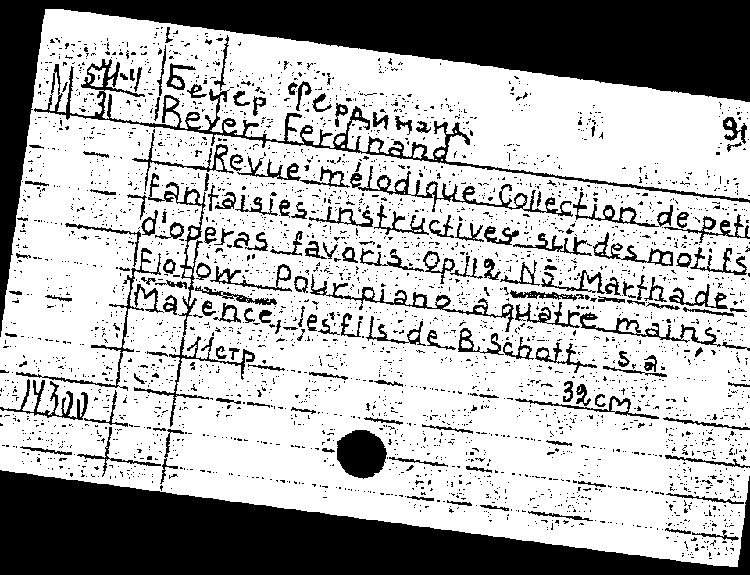 М 571-4 Бейер Фердинанд. 91
31 Beyer, Ferdinand.
Revue mélodique. Collection de peti
fantaisies instructives sur des motifs
d'operas favoris. Op. 112. N5. Martha de
Flotow." Pour piano à quatre mains.
Mayence, les fils de B. Schott, s. a.
11 стр. 32 см.
14300